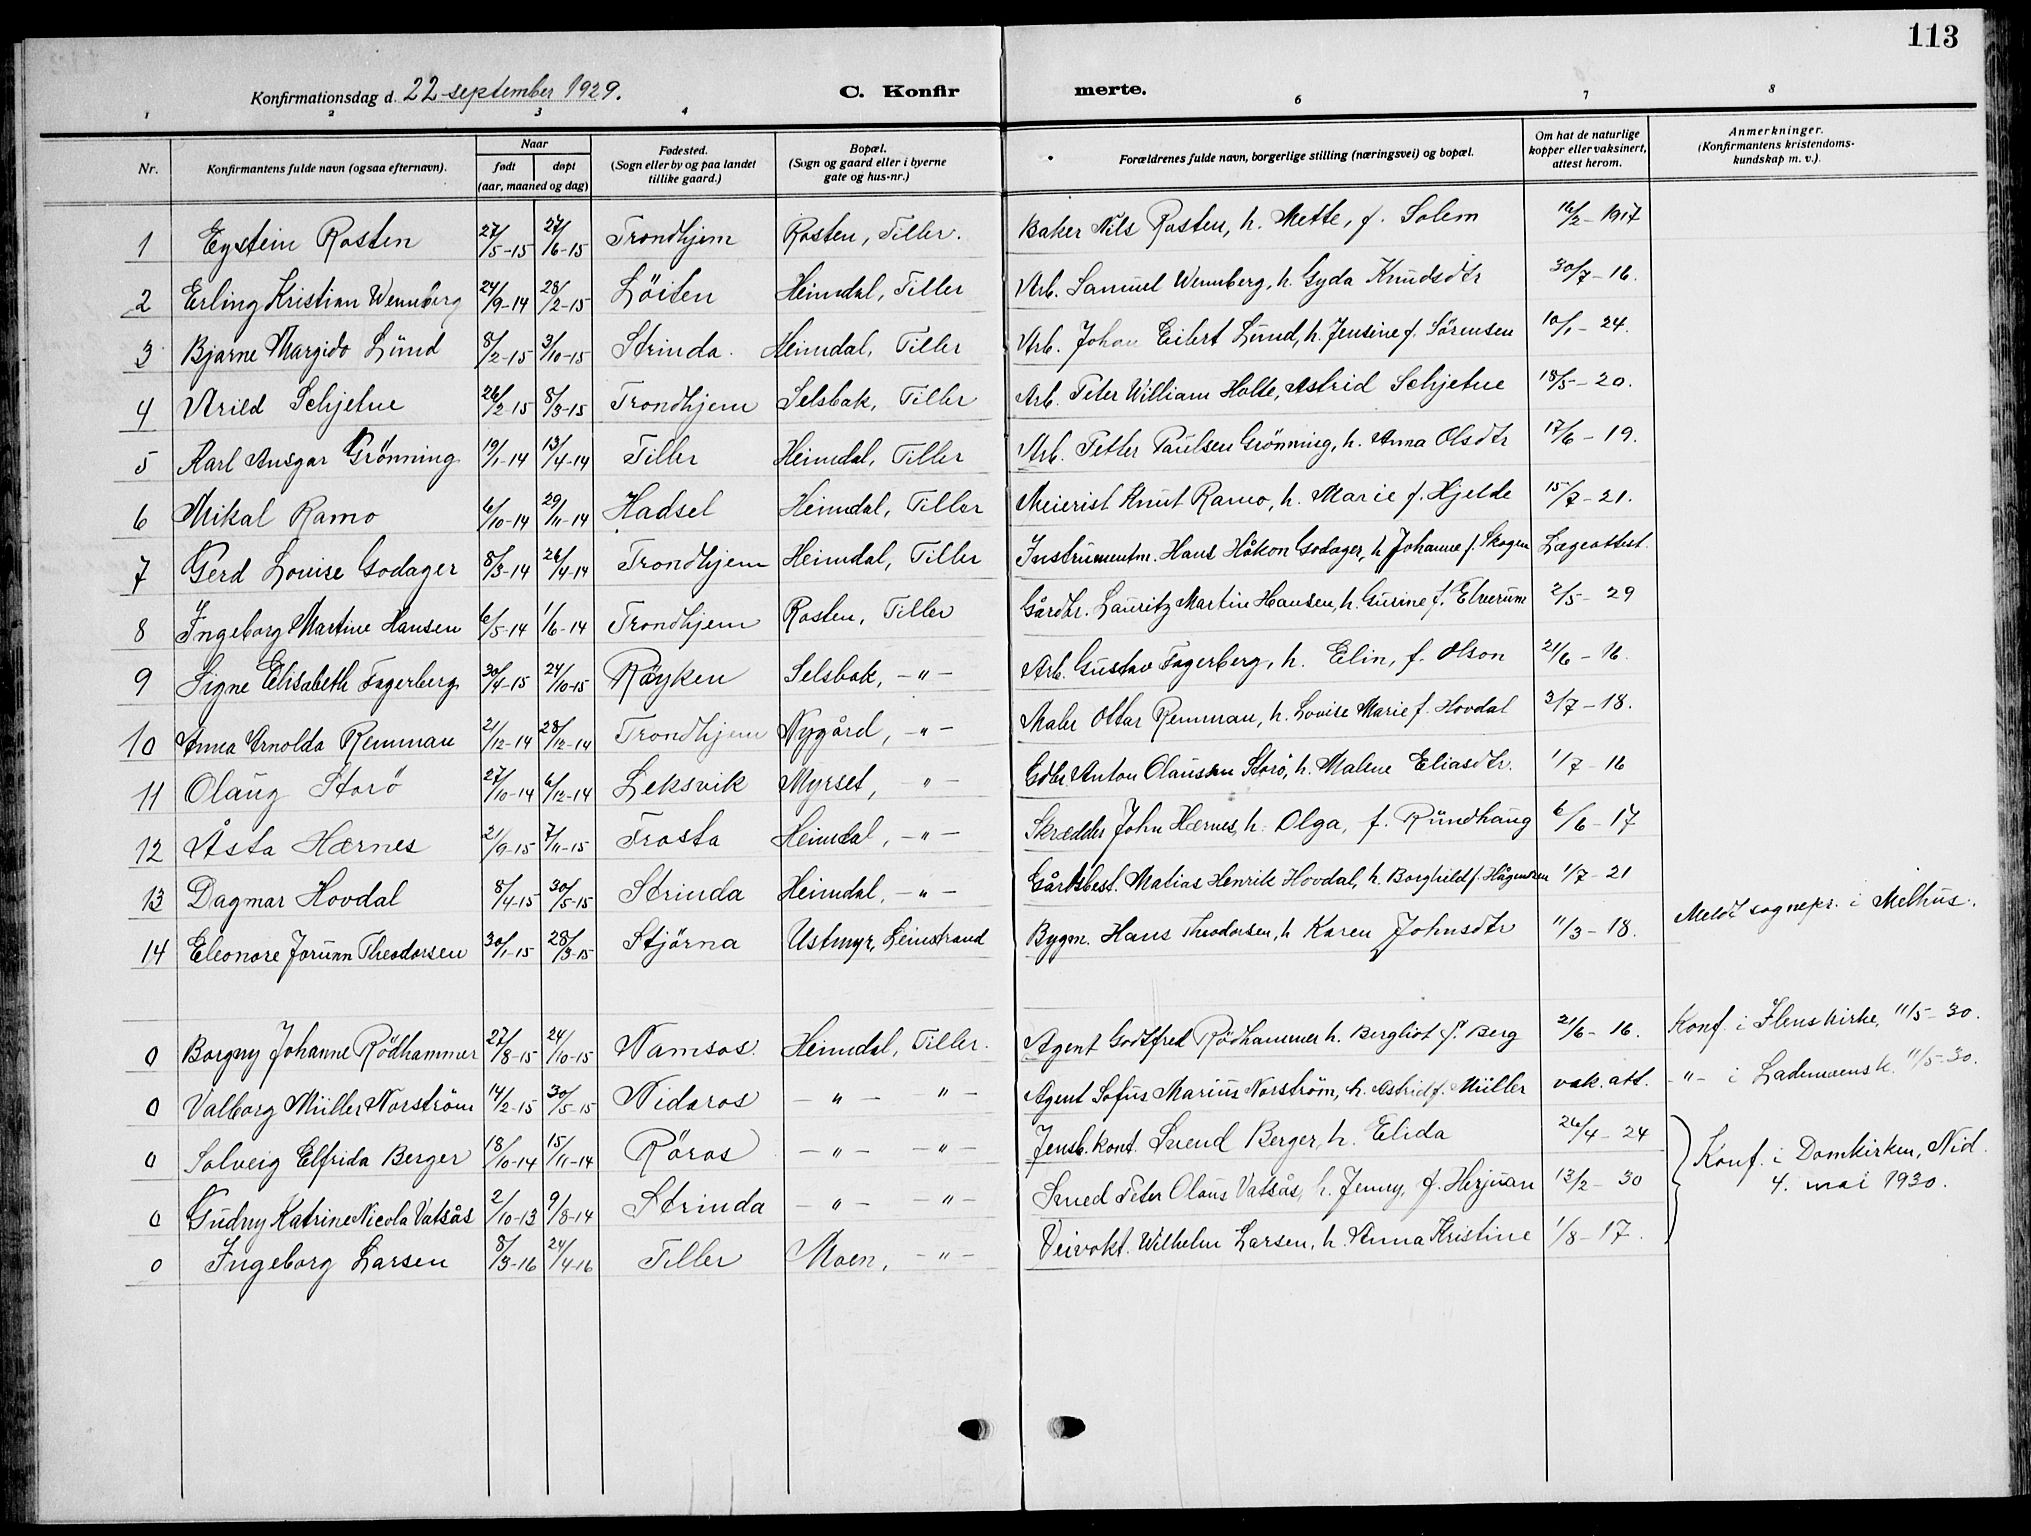 113
Konfirmationsdag d. 22 september 1929.
C. Konfirmerte.
1 2 3 4 6 7 8
Nr. | Konfirmantens fulde navn (ogsaa efternavn). | Naar født døpt (aar, maaned og dag) | Fødested. (Sogn eller by og paa landet tillike gaard.) | Bopæl. (Sogn og gaard eller i byerne gate og hus-nr.) | Forældrenes fulde navn, borgerlige stilling (næringsvei) og bopæl. | Om hat de naturlige kopper eller vaksinert, attest herom. | Anmerkninger. (Konfirmantens kristendomskundskap m. v.).
1 Eystein Rosten 27/5-15 27/6-15 Trondhjem Rosten, Tiller. Baker Nils Rosten, h. Mette, f. Solem 16/2-1917
2 Erling Kristian Wennberg 24/9-14 28/2-15 Löiten Heimdal, Tiller Arb. Samuel Wennberg, h. Gyda Knudsdtr 30/7-16.
3 Bjarne Margido Lund 8/2-15 3/10-15 Strinda. Heimdal, Tiller Arb. Johan Eilert Lund, h. Jensine f. Sörensen 10/1-24.
4 Arild Schjetne 26/2-15 8/3-15 Trondhjem Selsbak, Tiller Arb. Peter William Holte, Astrid Schjetne 18/5-20.
5 Karl Ansgar Grönning 19/1-14 13/4-14 Tiller Heimdal, Tiller Arb. Petter Paulsen Grönning, h. Anna Olsdtr 17/6-19.
6 Mikal Ramo 6/10-14 29/11-14 Hadsel Heimdal, Tiller Meierist Knut Ramo, h. Marie f. Hjelde 15/7-21.
7 Gerd Louise Godager 8/3-14 26/4-14 Trondhjem Heimdal, Tiller Instrumentm. Hans Håkon Godager, h. Johanne f. Skogen Lægeattest.
8 Ingeborg Martine Hansen 6/5-14 1/6-14 Trondhjem Rosten, Tiller Gårdbr. Lauritz Martin Hansen, h. Gurine f. Elverum 2/5-29
9 Signe Elisabeth Fagerberg 30/4-15 24/10-15 Röyken Selsbak, -"- Arb. Gustav Fagerberg, h. Elin, f. Olson 21/6-16.
10 Anna Arnolda Remman 21/12-14 28/12-14 Trondhjem Nygård, -"- Maler Ottar Remman, h. Lovise Marie f. Hovdal 3/7-18.
11 Olaug Storö 27/10-14 6/12-14 Leksvik Myrset, " - Gdbr. Anton Olaussen Storö, h. Malene Eliasdtr. 1/7-16
12 Åsta Hærnes 21/9-15 7/11-15 Frosta Heimdal, -"- Skredder John Hærnes, h. Olga, f. Rundhaug 6/6-17
13 Dagmar Hovdal 8/4-15 30/5-15 Strinda Heimdal, -"- Gårdsbest. Matias Henrik Hovdal, h. Borghild f. Hågensen 1/7-21
14 Eleonore Jorunn Theodorsen 30/1-15 28/3-15 Stjörna Ustmyr, Leinstrand Bygm. Hans Theodorsen, h. Karen Johnsdtr 11/3-18. Meldt sognepr. i Melhus.
0 Borgny Johanne Rödhammer 27/8-15 24/10-15 Namsos. Heimdal, Tiller. Agent Godtfred Rödhammer h. Bergliot f. Berg 21/6-16. Konf. i Ilens kirke, 11/5-30.
0 Valborg Müller Norström 14/2-15 30/5-15 Nidaros -"- "- Agent Sofus Marius Norström, h. Astrid f. Müller vak. att. -"- i Lademoensk. 11/5-30.
0 Solveig Elfrida Berger 18/10-14 15/11-14 Röros -"- -"- Jensb. kont. Svend Berger, h. Elida 26/4-24
0 Gudny Katrine Nicola Vatsås 2/10-13 9/8-14 Strinda -"- -"- Smed Peter Olaus Vatsås, h. Jenny, f. Herjuan 13/2-30 Konf. i Domkirken, Nid. 4. mai 1930.
0 Ingeborg Larsen 8/3-16 24/4-16 Tiller Moen, -"- Veivokt. Wilhelm Larsen, h. Anna Kristine 1/8-17.